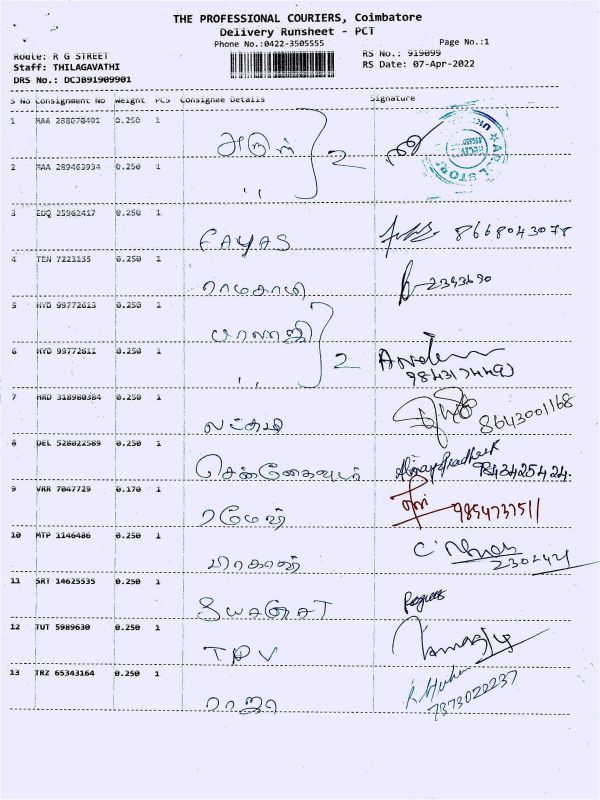 THE PROFESSIONAL COURIERS, Coimbatore
Delivery Runsheet - PCT
Phone No.:0422-3505555
Page No.:1
Route: R G STREET
RS No.: 919099
Staff: THILAGAVATHI
RS Date: 07-Apr-2022
DRS No.: DCJ091909901
S No Consignment No Weight PCS Consignee Details Signature
1 MAA 288070401 0.250 1 அருள்
2 MAA 289463934 0.250 1 ,, 2
3 EDQ 25962417 0.250 1 FAYAS 8668043078
4 TEN 7223135 0.250 1 ராமசாமி 2393690
5 HYD 99772613 0.250 1 பாலாஜி
6 HYD 99772611 0.250 1 ,, 2
7 HRD 318980384 0.250 1 லட்சுமி 8643001168
8 DEL 528022589 0.250 1 9843425424.
9 VRR 7047729 0.170 1 ரமேஷ்
10 MTP 1146486 0.250 1 பிரகாஷ்
11 SRT 14625535 0.250 1
12 TUT 5989630 0.250 1
13 TRZ 65343164 0.250 1 ராஜா 7373022237